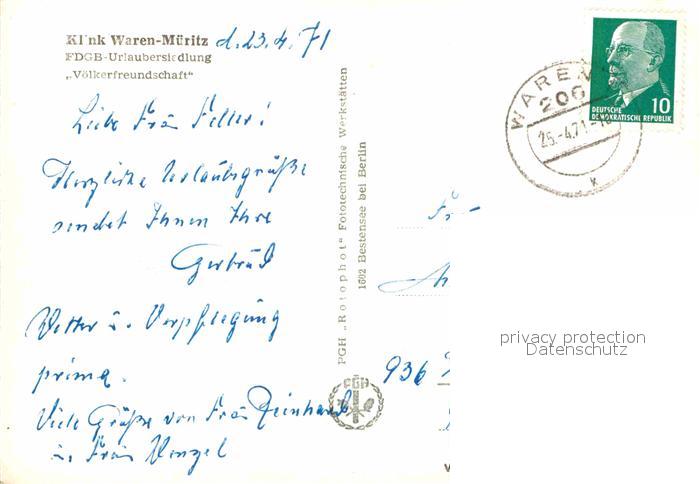 Klink Waren-Müritz d. 23.4.71
FDGB-Urlaubersiedlung
„Völkerfreundschaft“
Liebe Frau Feller!
Herzliche Urlaubsgrüße
sendet Ihnen Ihre
Gertrud
Wetter u. Verpflegung
prima.
Viele Grüße von Frau Reinhardt
u. Frau Wenzel
PGH „Rotophot“ Fototechnische Werkstätten
1602 Bestensee bei Berlin
PGH
WAREN
206
25.-4.71
K
10
DEUTSCHE
DEMOKRATISCHE REPUBLIK
936
privacy protection
Datenschutz